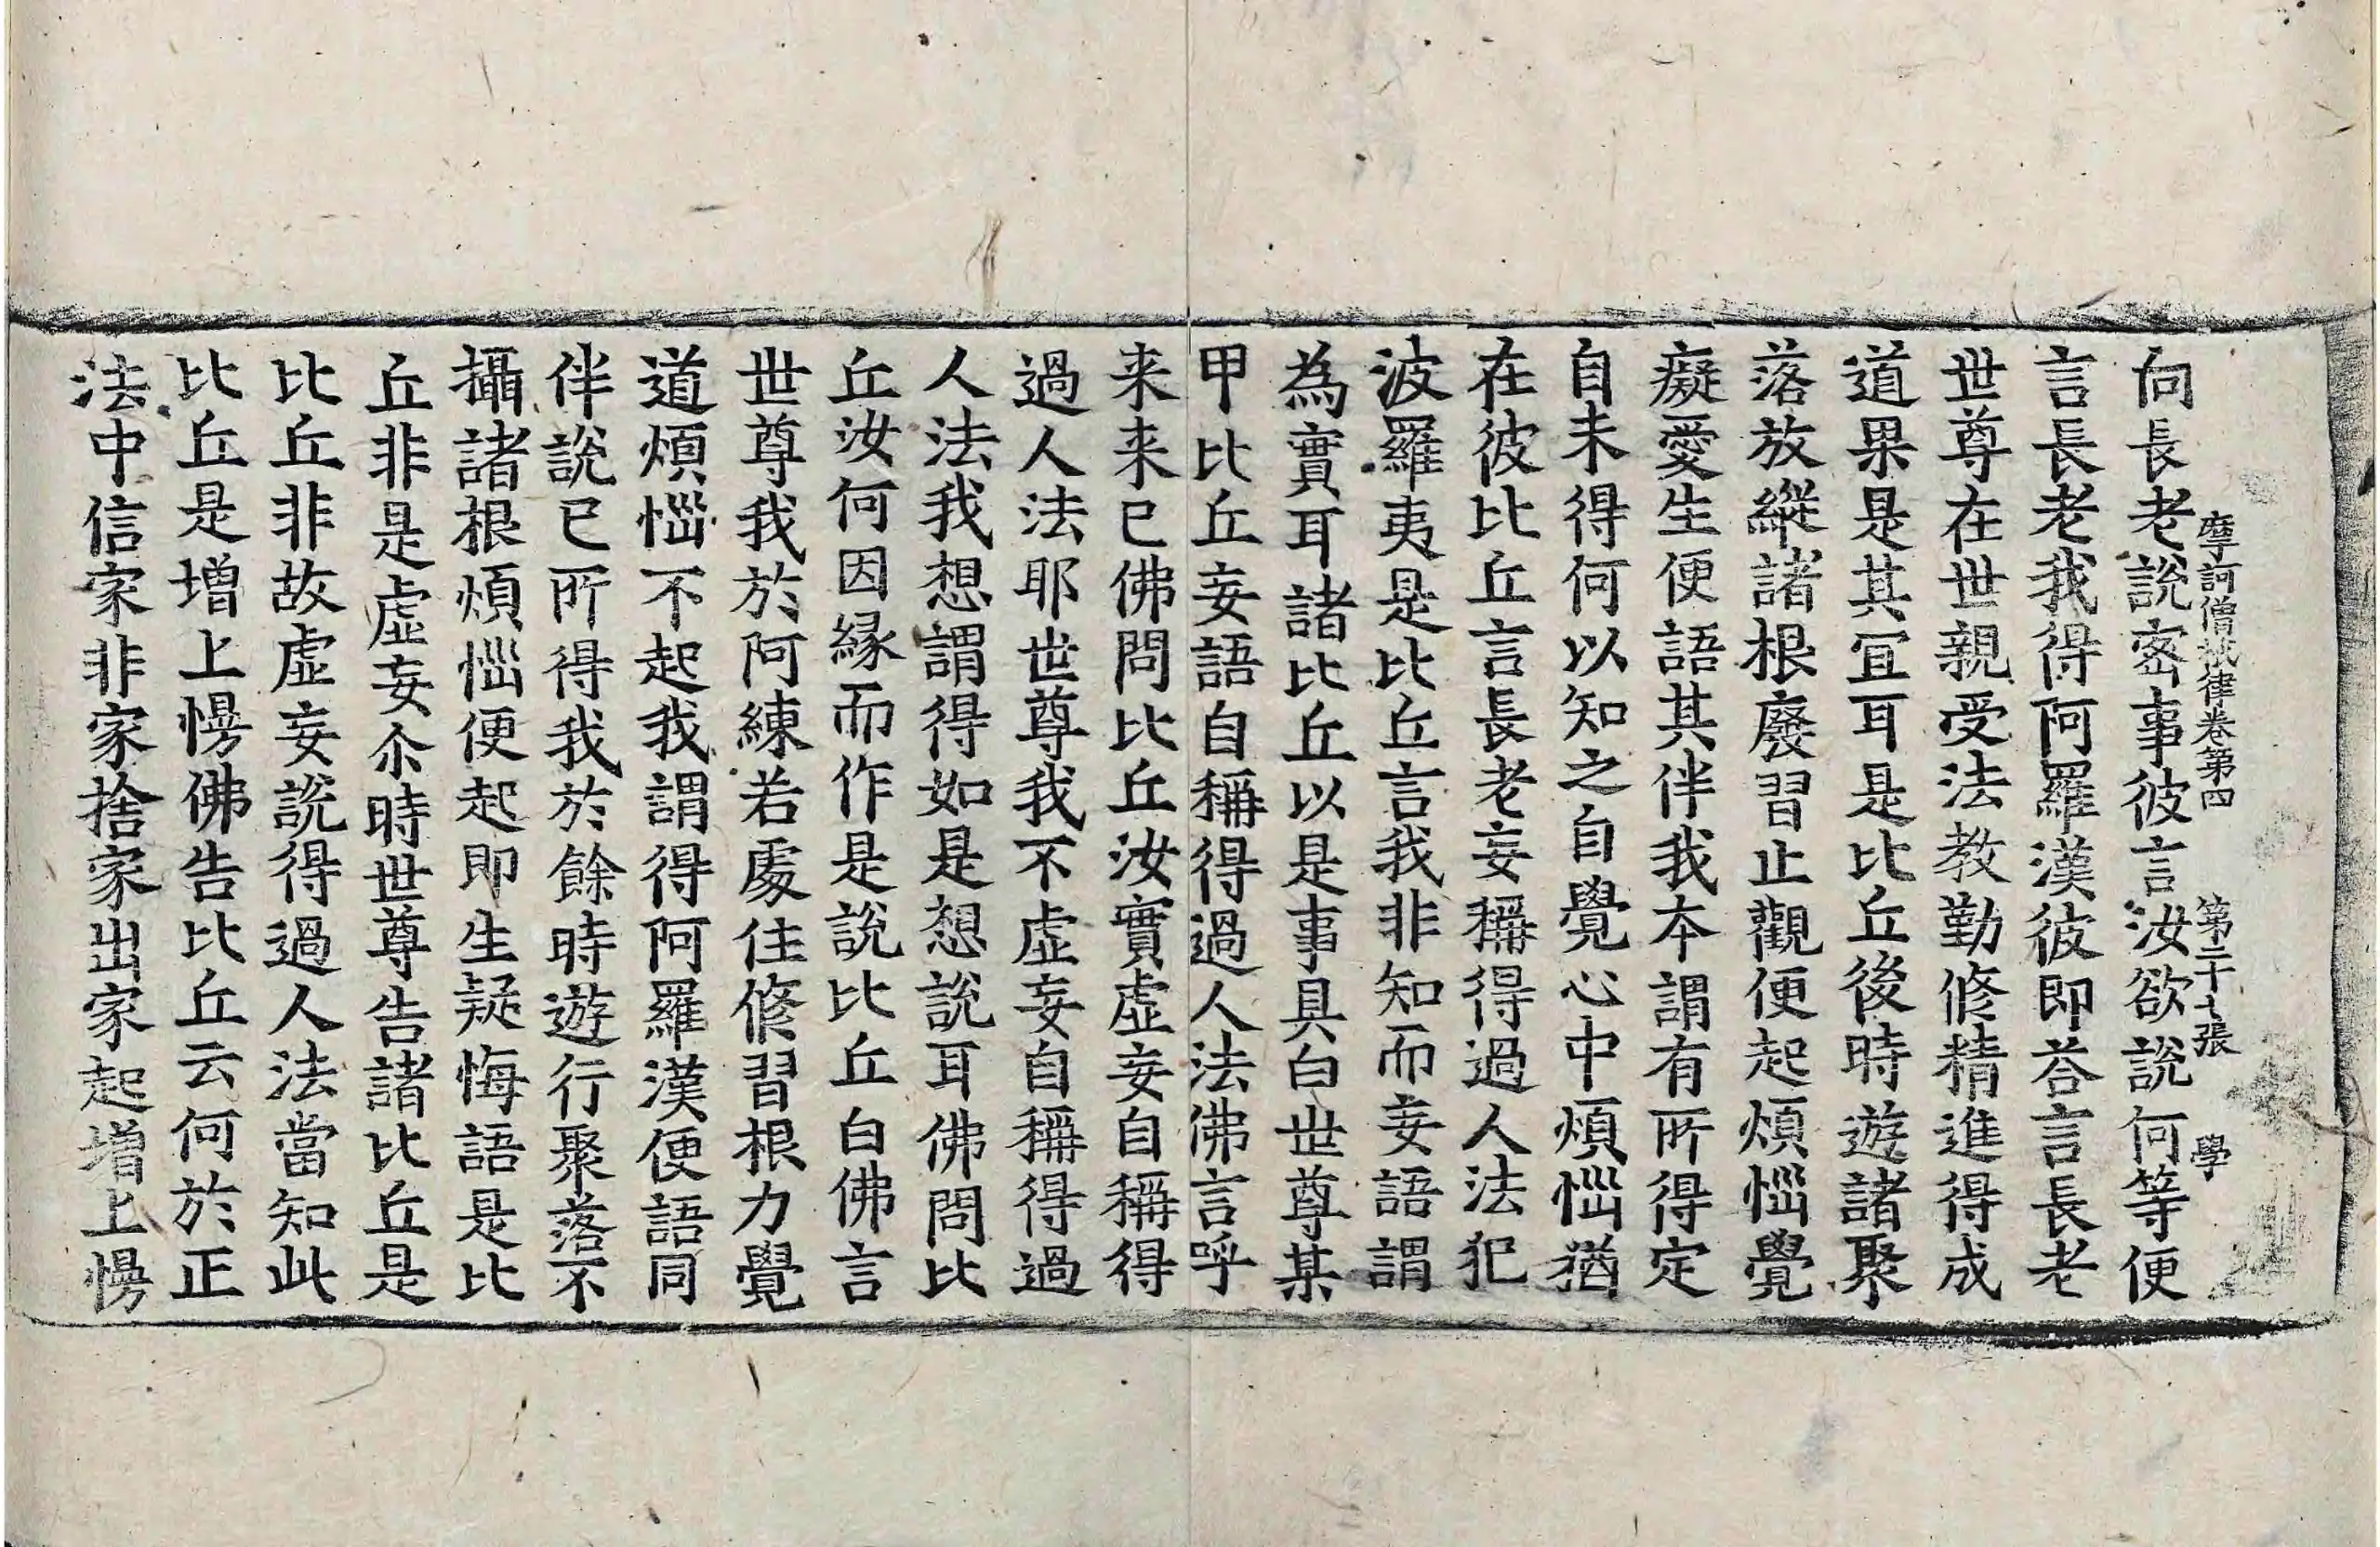 摩訶僧祇律卷第四　第二十七張　學
向長老說密事彼言汝欲說何等便
言長老我得阿羅漢彼即荅言長老
世尊在世親受法教勤修精進得成
道果是其冝耳是比丘後時遊諸聚
落放縱諸根廢習止觀便起煩惱覺
癡愛生便語其伴我夲謂有所得定
自未得何以知之自覺心中煩惱猶
在彼比丘言長老妄稱得過人法犯
波羅夷是比丘言我非知而妄語謂
為實耳諸比丘以是事具白世尊某
甲比丘妄語自稱得過人法佛言呼
来来已佛問比丘汝實虛妄自稱得
過人法耶世尊我不虛妄自稱得過
人法我想謂得如是想說耳佛問比
丘汝何因緣而作是說比丘白佛言
世尊我於阿練若處住修習根力覺
道煩惱不起我謂得阿羅漢便語同
伴說已所得我於餘時遊行聚落不
攝諸根煩惱便起即生疑悔語是比
丘非是虛妄尒時世尊告諸比丘是
比丘非故虛妄說得過人法當知此
比丘是增上慢佛告比丘云何於正
法中信家非家捨家出家起增上慢